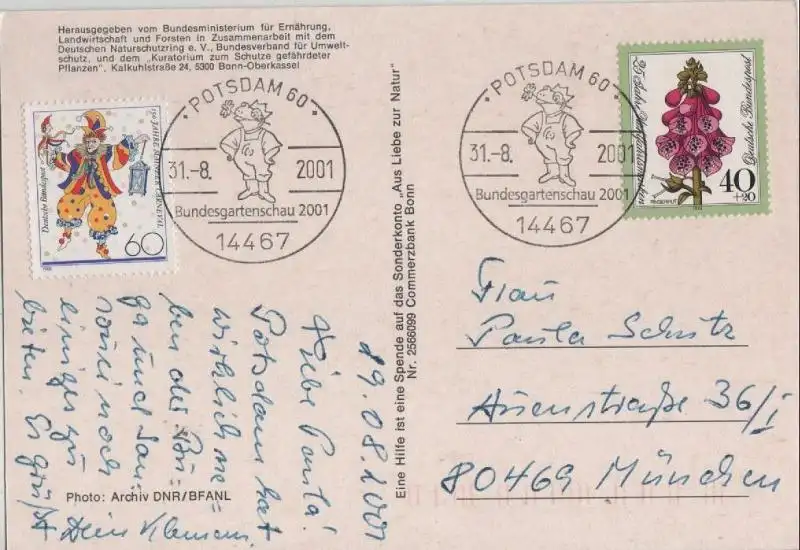 Herausgegeben vom Bundesministerium für Ernährung,
Landwirtschaft und Forsten in Zusammenarbeit mit dem
Deutschen Naturschutzring e. V., Bundesverband für Umwelt-
schutz, und dem „Kuratorium zum Schutze gefährdeter
Pflanzen", Kalkuhlstraße 24, 5300 Bonn-Oberkassel
Deutsche Bundespost
150 JAHRE MAINZER CARNEVAL
60
POTSDAM 60
31.-8. 2001
Bundesgartenschau 2001
14467
POTSDAM 60
31.-8. 2001
Bundesgartenschau 2001
14467
25 Jahre Wohlfahrtsmarken
Deutsche Bundespost
FINGERHUT
40
+20
Eine Hilfe ist eine Spende auf das Sonderkonto „Aus Liebe zur Natur"
Nr. 2566099 Commerzbank Bonn
19.08.2001
Liebe Paula!
Potsdam hat
wirklich ne
ben der
ga und
noch
einiges zu
bieten. Es grüßt
Dein Klemens.
Frau
Paula Schutz
36/I
80469 München
Photo: Archiv DNR/BFANL